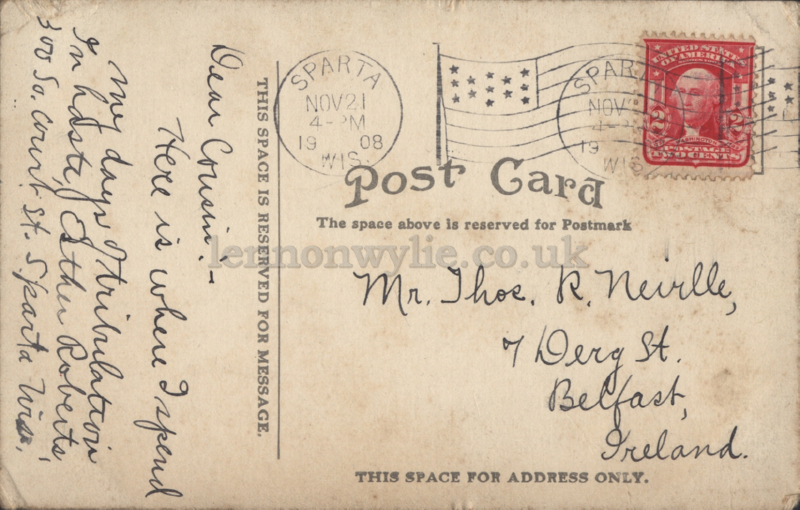 SPARTA
NOV 21
4-PM
19 08
WIS.
SPARTA
NOV
4-
19
WIS
UNITED STATES
OF AMERICA
2 2
POSTAGE
TWO CENTS
Post Card
The space above is reserved for Postmark
lennonwylie.co.uk
Mr. Thos. R. Neville,
7 Derg St.
Belfast,
Ireland.
THIS SPACE FOR ADDRESS ONLY.
THIS SPACE IS RESERVED FOR MESSAGE.
Dear Cousin:-
Here is where I spend
my days of tribulation
In haste, Esther Roberts
300 So. Court St. Sparta Wis.